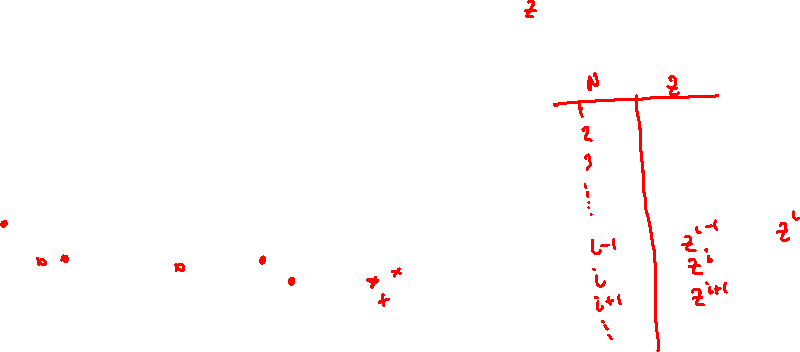 z
N z
1
2
3
⋮
i-1 z^{i-1}
i z^i
i+1 z^{i+1}
⋮
z^i